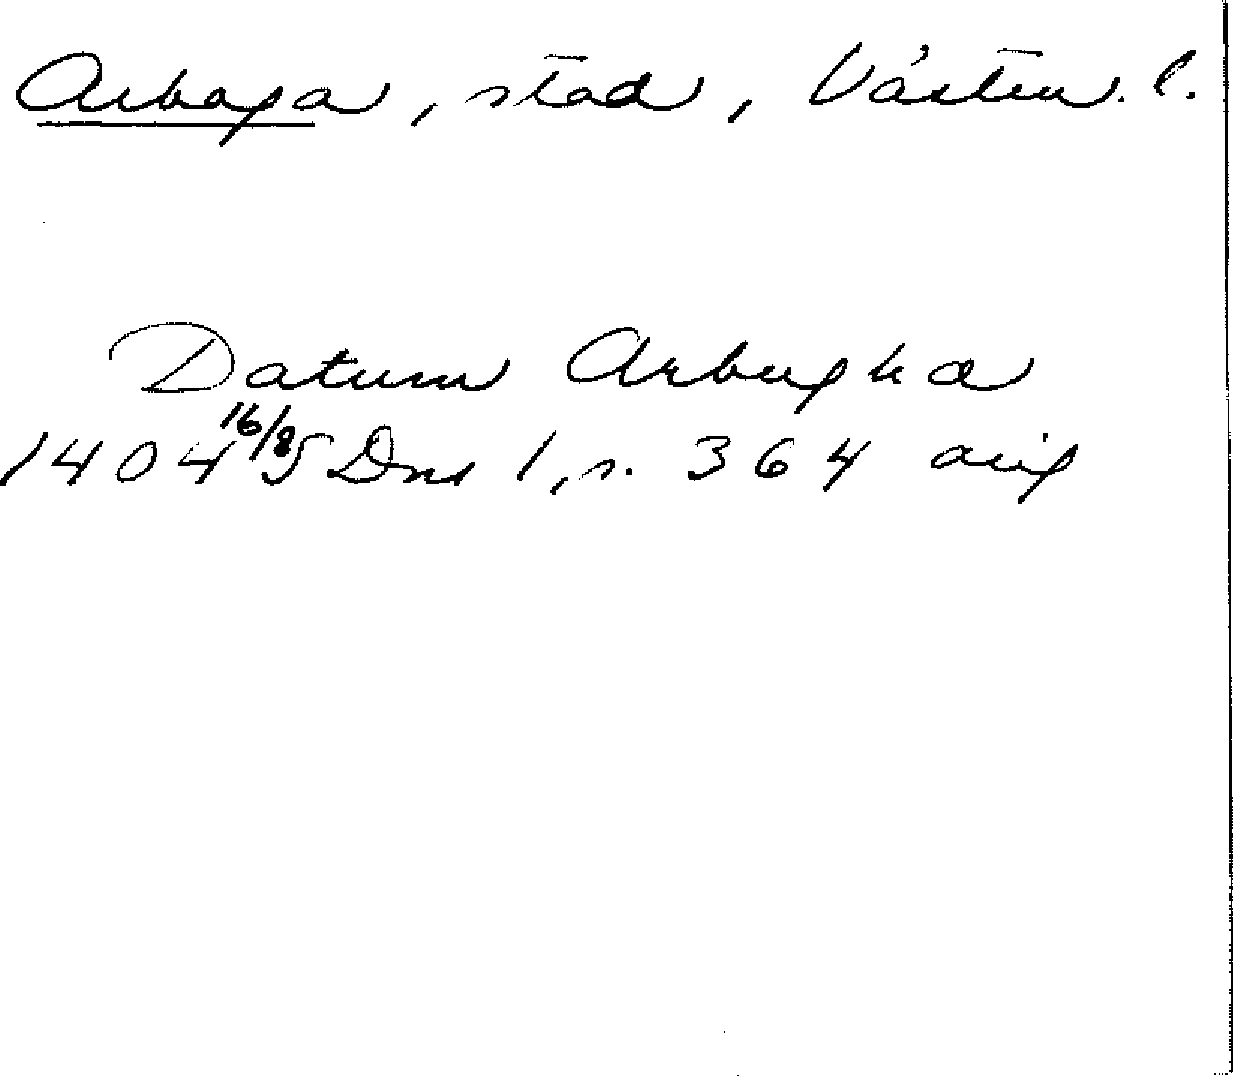 Arboga, stad, Västm. l.
Datum Arbugha
1404 16/8 SDns 1, s. 364 orig